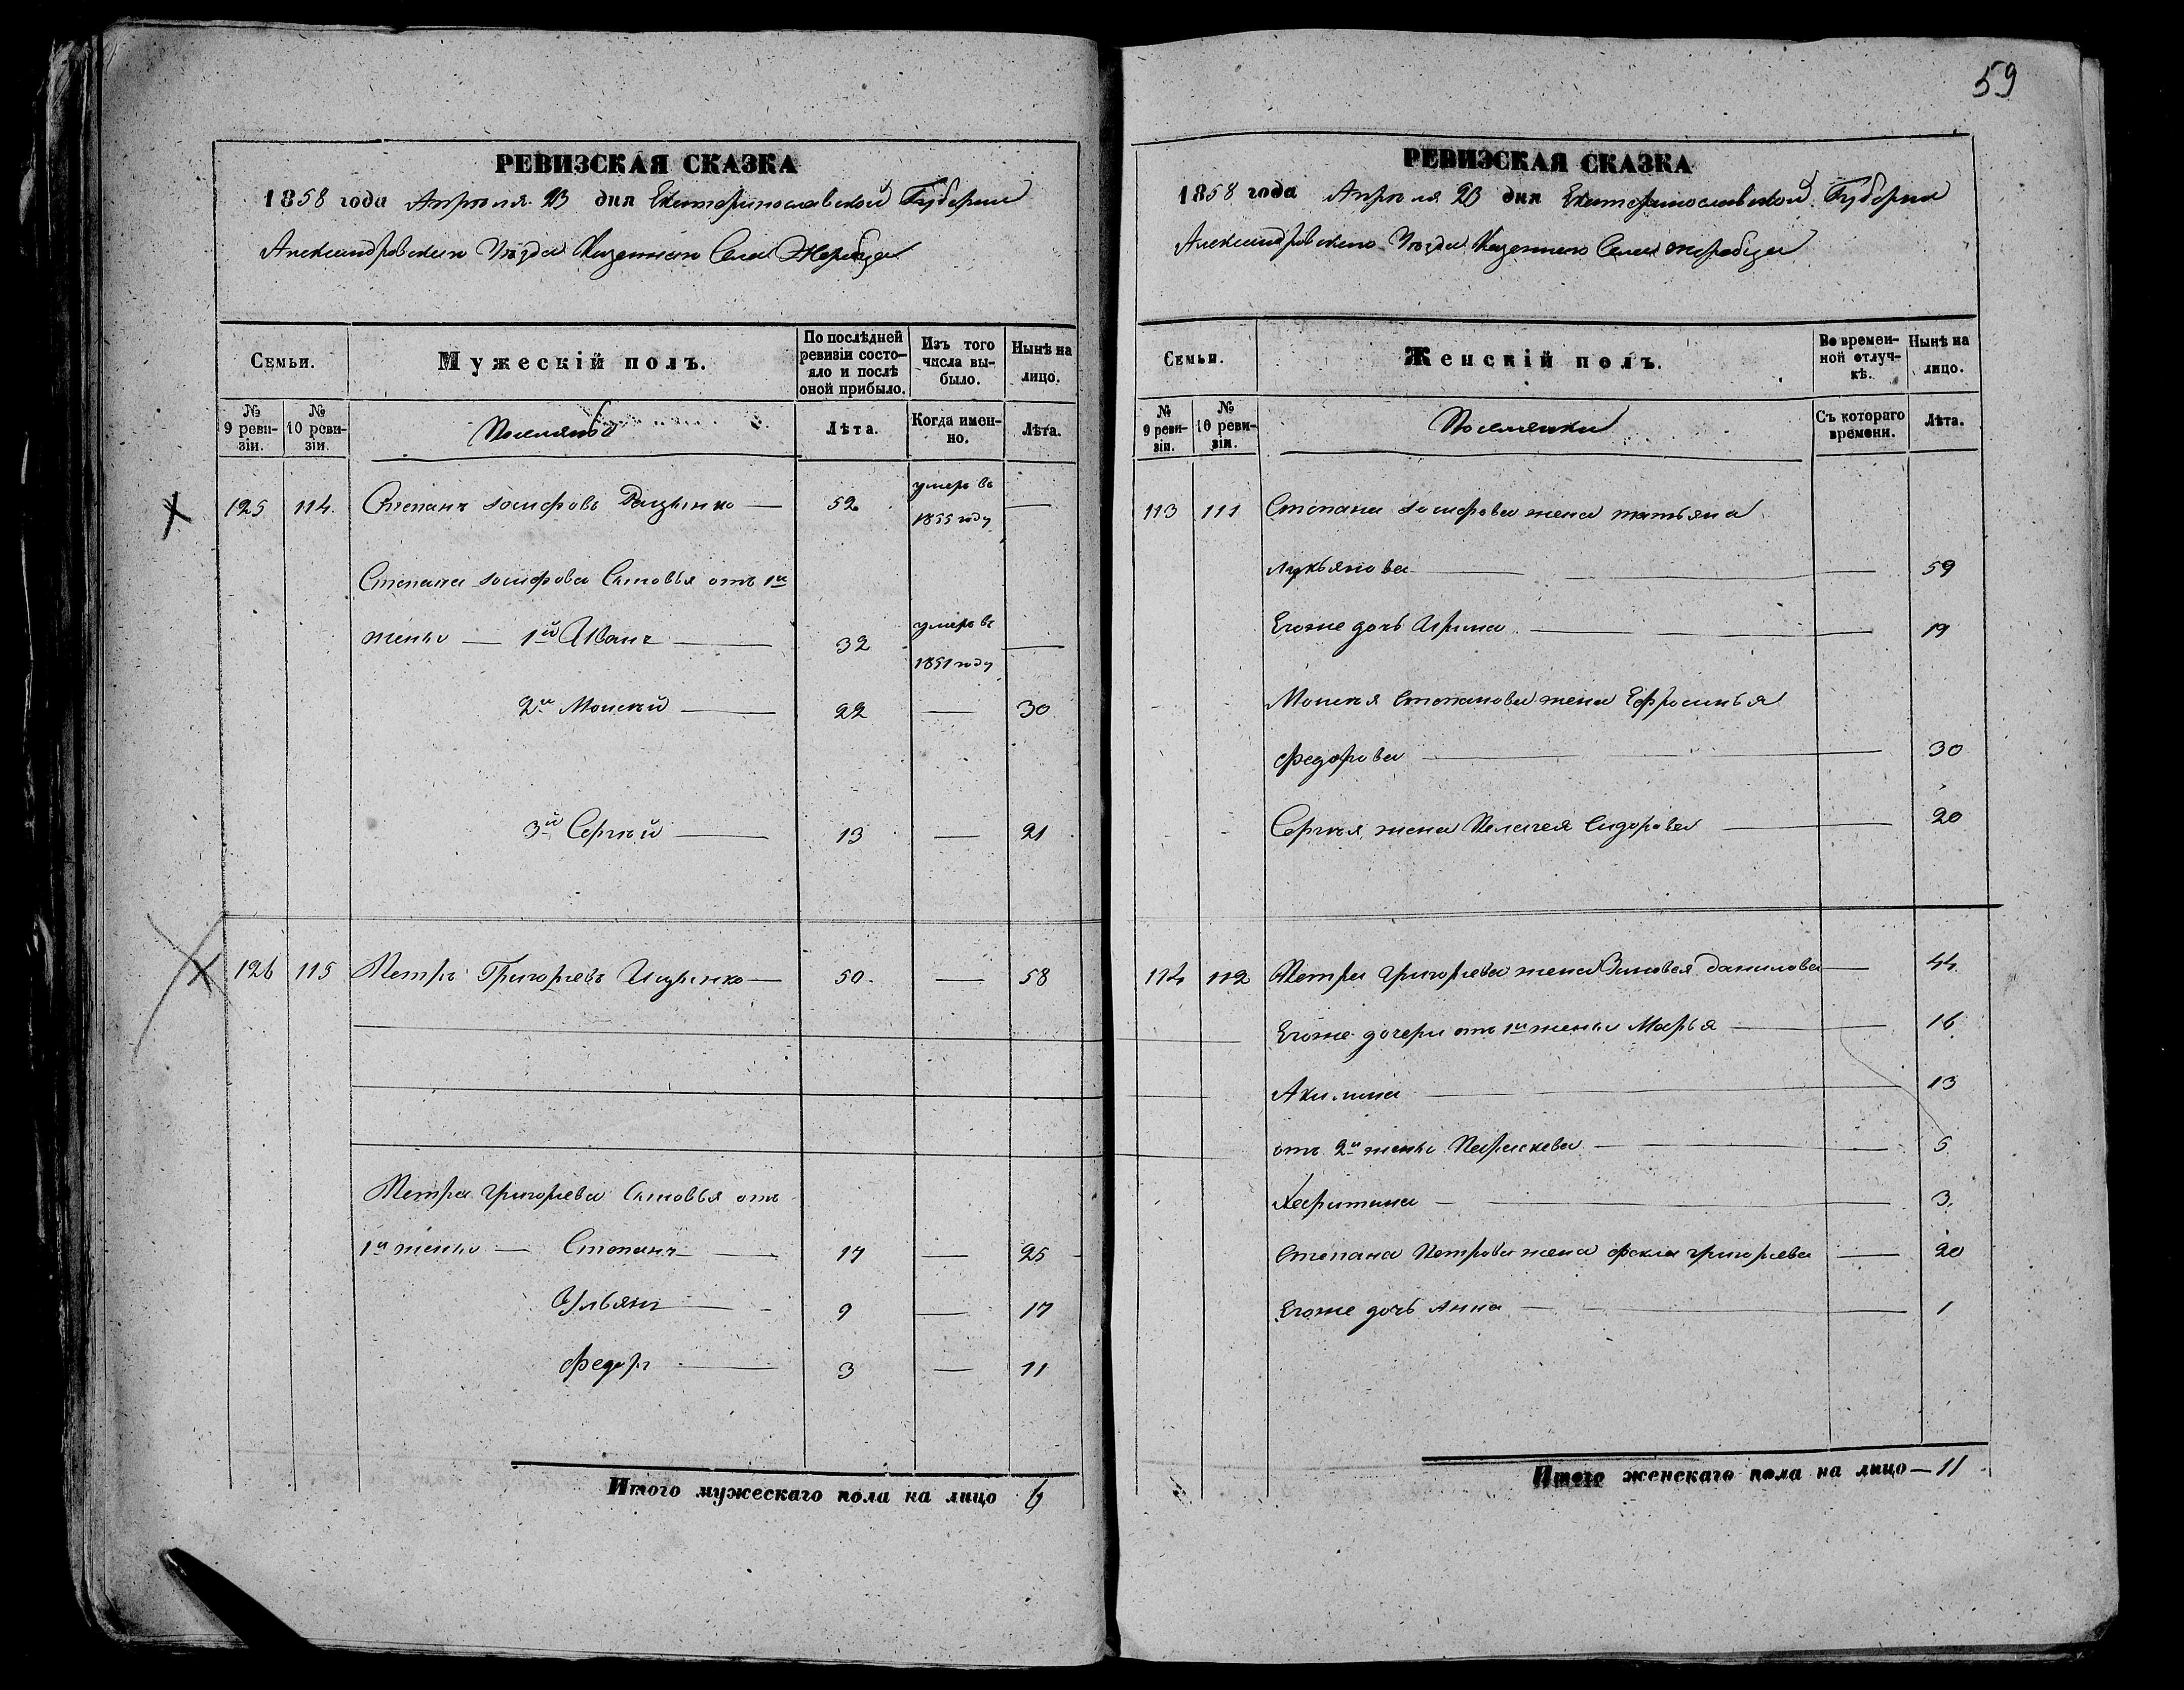 59
РЕВИЗСКАЯ СКАЗКА
1858 года Апрѣля 23 дня Екатеринославской Губерніи
Александровскаго Уѣзда Казеннаго Села Жеребца
Семьи.
Мужескій полъ.
По послѣдней ревизіи состо-
яло и послѣ
оной прибыло.
Изъ того
числа вы-
было.
Нынѣ на
лицо.
№
9 реви-
зіи.
№
10 реви-
зіи.
Поселяне
Лѣта.
Когда имен-
но.
Лѣта.
125 114. Степанъ Іосифовъ 52 умеръ въ
1855 году —
Степана Іосифова Сыновья отъ 1й
жены — 1й Иванъ — 32 умеръ въ
1851 году —
2й Моисей — 22 — 30
3й Сергѣй — 13 — 21
126 115 Петръ Григорьевъ Ищенко — 50. — 58
Петра Григорьева Сыновья отъ
1й жены — Степанъ — 17 — 25
Ульянъ — 9 — 17
Федоръ — 3 — 11
Итого мужескаго пола на лицо 6
РЕВИЗСКАЯ СКАЗКА
1858 года Апрѣля 23 дня Екатеринославской Губерніи
Александровскаго Уѣзда Казеннаго Села Жеребца
Семьи.
Женскій полъ.
Во времен-
ной отлуч-
кѣ.
Нынѣ на
лицо.
№
9 реви-
зіи.
№
10 реви-
зіи.
Поселянки
Съ котораго
времени.
Лѣта.
113 111 Степана Іосифова жена татьяна
лукьянова — — 59
Егоже дочь Ирина — — 19
Моисея Степанова жена Ефросинья
Федорова — — 30
Сергѣя жена Пелагея Сидорова — — 20
114 112 Петра Григорьева жена Зиновья Данилова — 44
Егоже дочери отъ 1й жены Марья — — 16
Акилина — — 13
отъ 2й жены Параскева — — 5
Харитина — — 3.
Степана Петрова жена Фекла Григорьева — 20
Егоже дочь Анна — — 1
Итого женскаго пола на лицо — 11